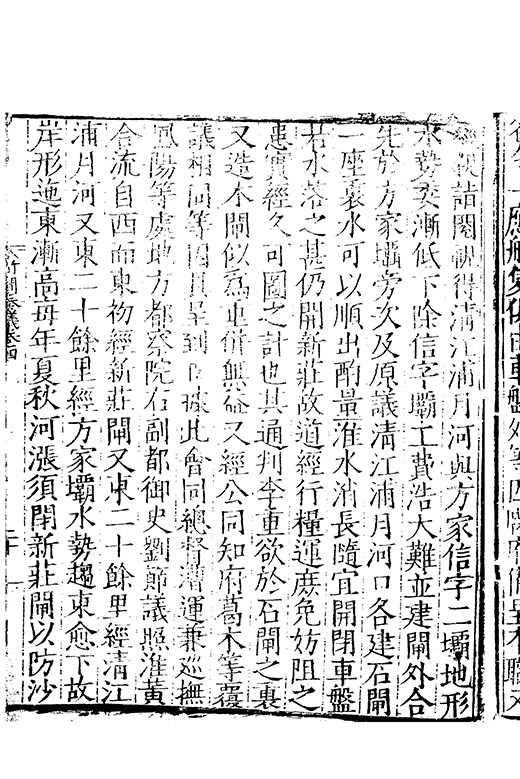 親詣閱視得淸江浦月河與方家信字二壩地形
水勢委漸低下除信字壩工費浩大難並建閘外合
先於方家壩旁次及原議淸江浦月河口各建石閘
一座裏水可以順出酌量淮水消長隨宜開閉車盤
若水落之甚仍開新莊故道經行糧運庶免妨阻之
患實經久可圖之計也其通判李重欲於石閘之裏
又造木閘似爲屯併興益又經公同知府葛木等覆
議相同等因具呈到據此會同總督漕運兼巡撫
鳳陽等處地方都察院右副都御史劉節議照淮黃
合流自西而東初經新莊閘又東二十餘里經淸江
浦月河又東二十餘里經方家壩水勢趨東愈下故
岸形迤東漸高每年夏秋河漲須閉新莊閘以防沙